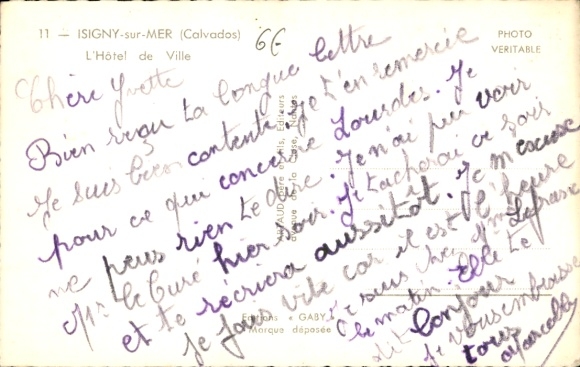 11 — ISIGNY-sur-MER (Calvados)
L'Hôtel de Ville
66
PHOTO
VERITABLE
Chère Yvette
Bien reçu ta longue lettre
Je suis bien contente. Je t'en remercie
pour ce qui concerne Lourdes. Je
ne peus rien te dire. Je n'ai pu voir
Mr le Curé hier soir. Je tacherai ce soir
et te récrierai aussitôt. Je m'excuse
Je fais vite car il est l'heure
Je suis chez Mme
ce matin. Elle te
dit bonjour
Je vous embrasse
tous
ARTAUD père et fils, Editeurs
Nantes
Editions « GABY »
Marque déposée